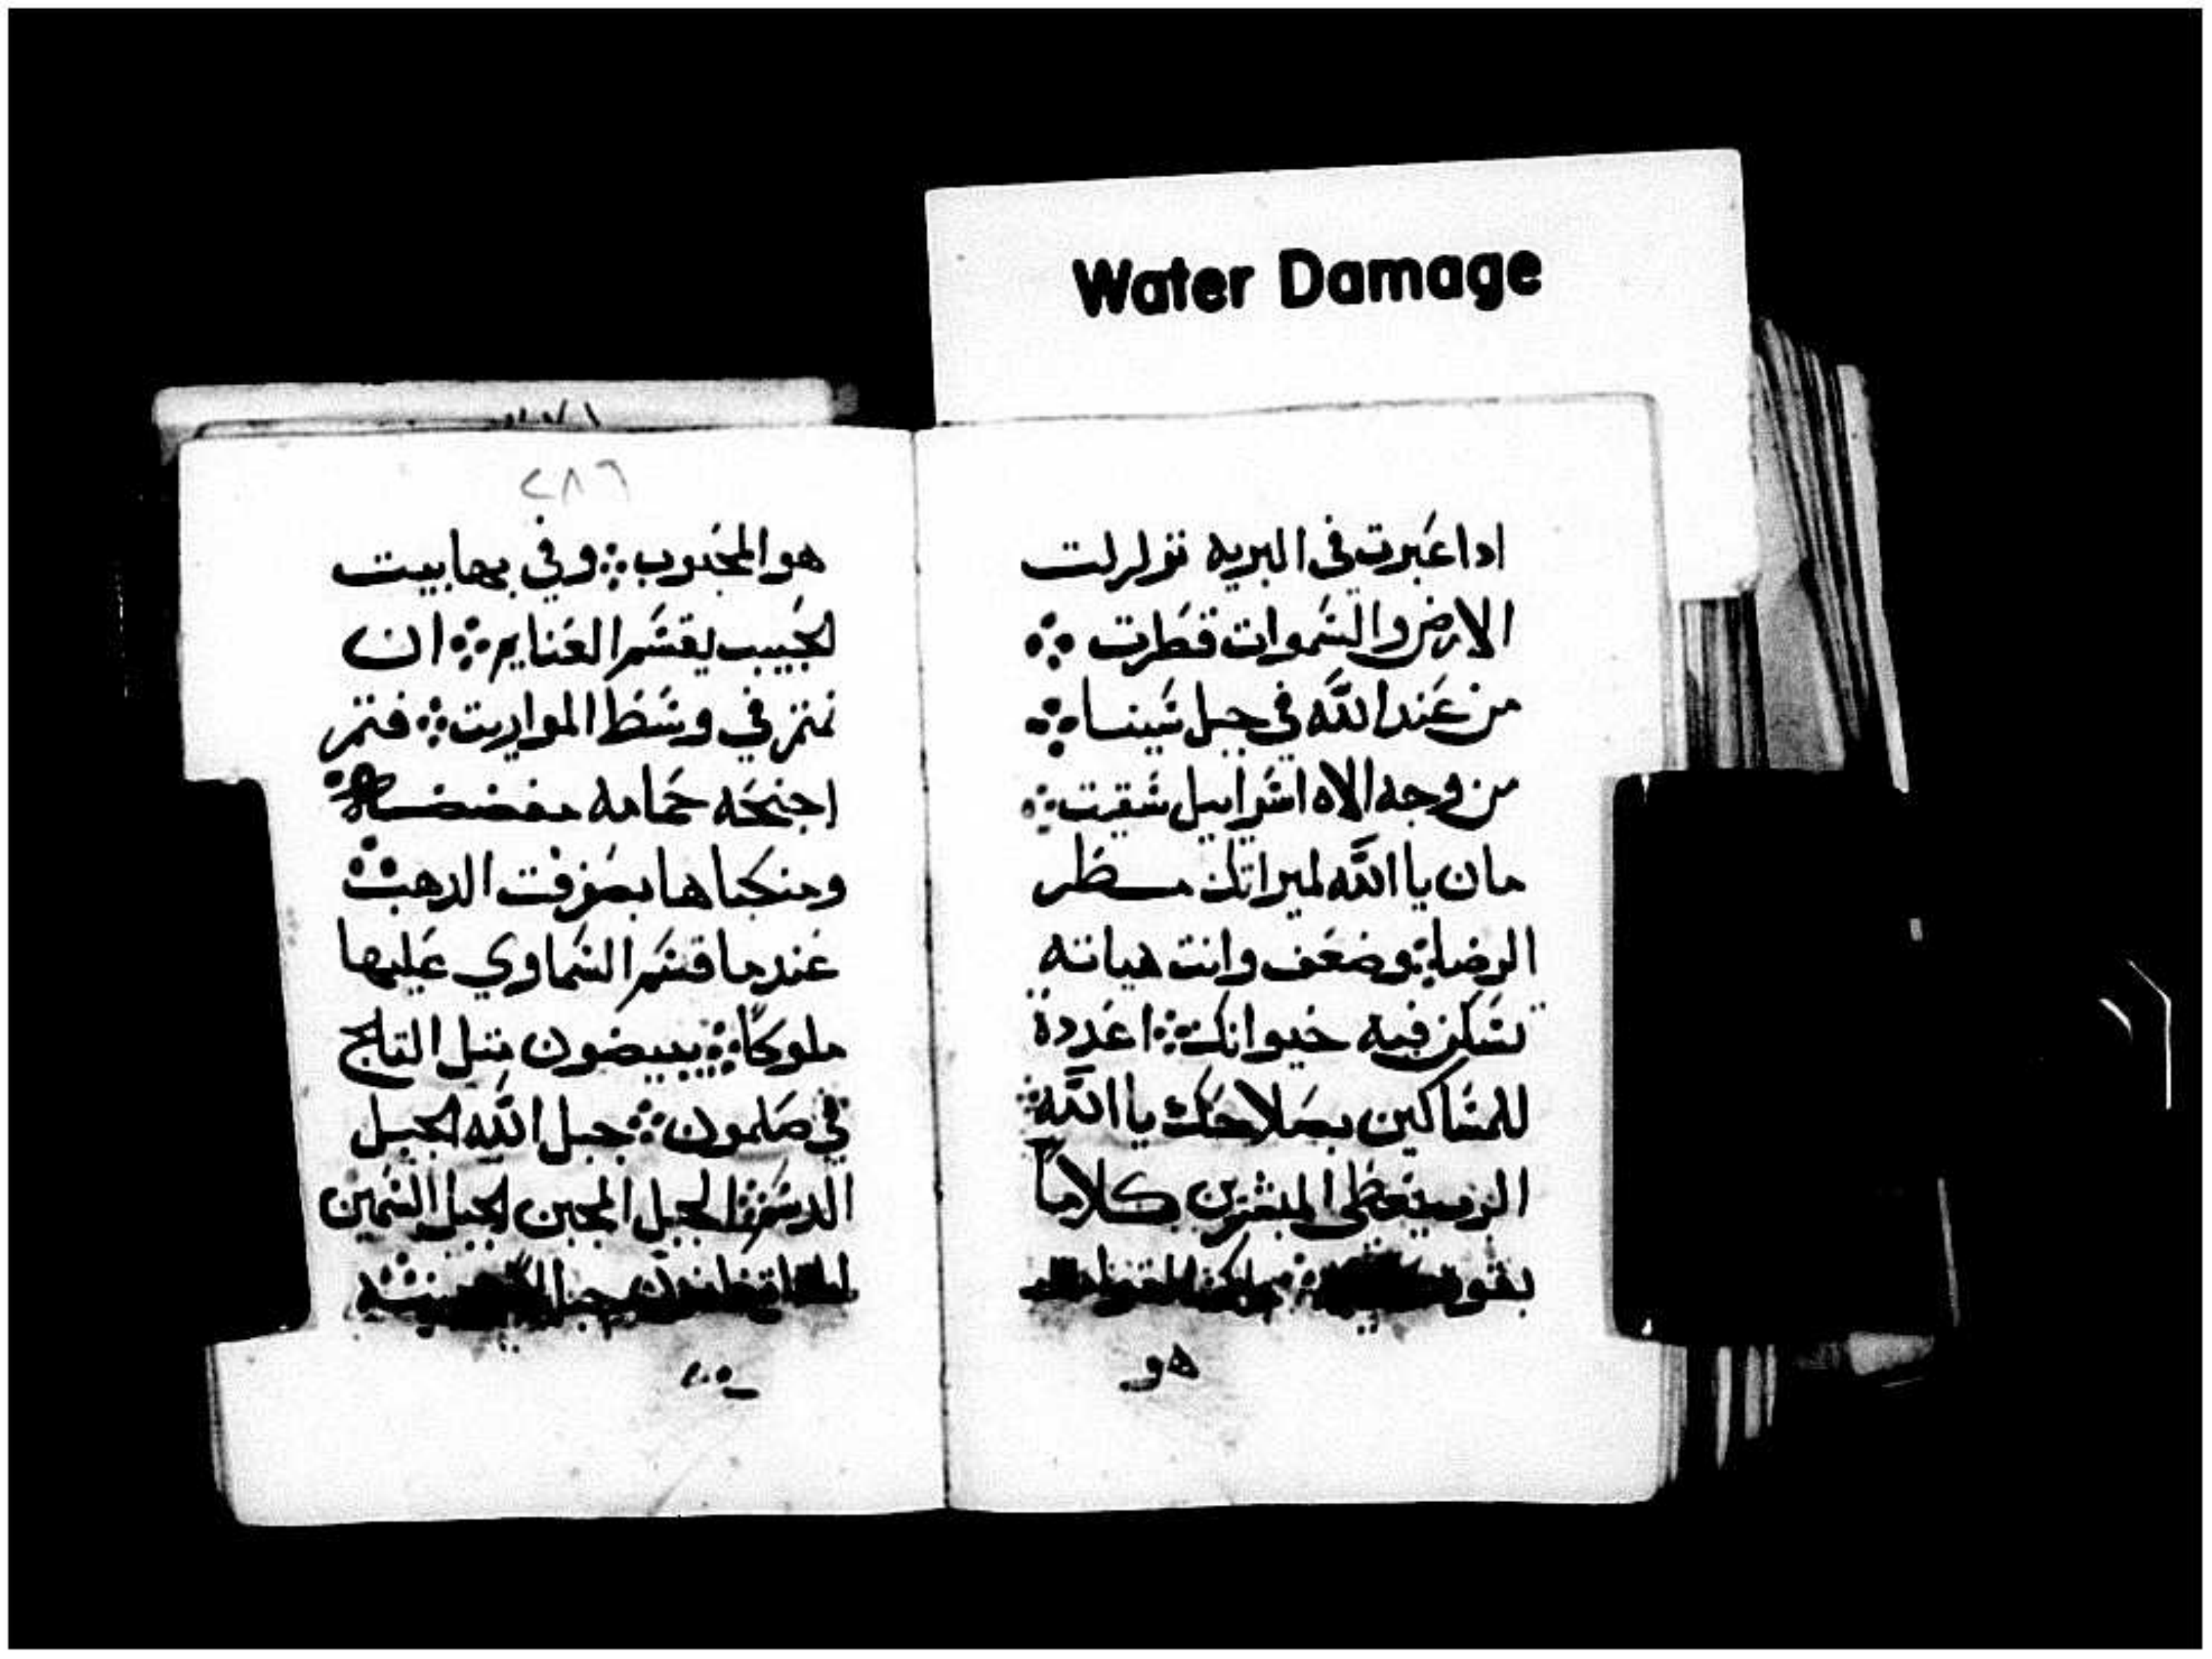 Water Damage
اداعبرت في البريه تزلزلت
الارض والسموات قطرت
من عند الله في جبل سينا
من وجه الاه اسراييل شقيت
مان يا الله لميراتك مطر
الرضا وضعف وانت هياته
تسكن فيه حيوانك اعددة
للمساكين بصلاحك يا الله
الرب يعطي المبشرين كلاما
بقوه
هو
٢٨٦
هو المحبوب وفي بهابيت
الحبيب يقسم الغنايم ان
نمتم في وسط المواريت فتم
اجنحه حمامه مفضضاه
ومنكباها بصفرت الدهب
عندما قسم السماوي عليها
ملوكا يبيضون متل التلج
في صلمون جبل الله الجبل
الدسم الجبل المجبن الجبل السمين